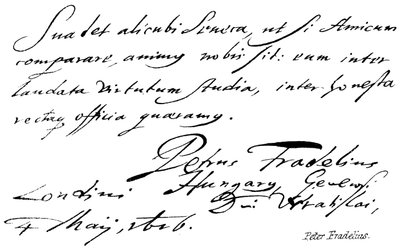 Suadet alicubi Seneca, ut si Amicum
comparare, animus nobis sit: eum inter
laudata virtutum studia, inter honesta
rectaq officia quæramus.
Petrus Fradelius
Hungarus,
Londini
4 Maij, 1616.
Peter Fradelius.